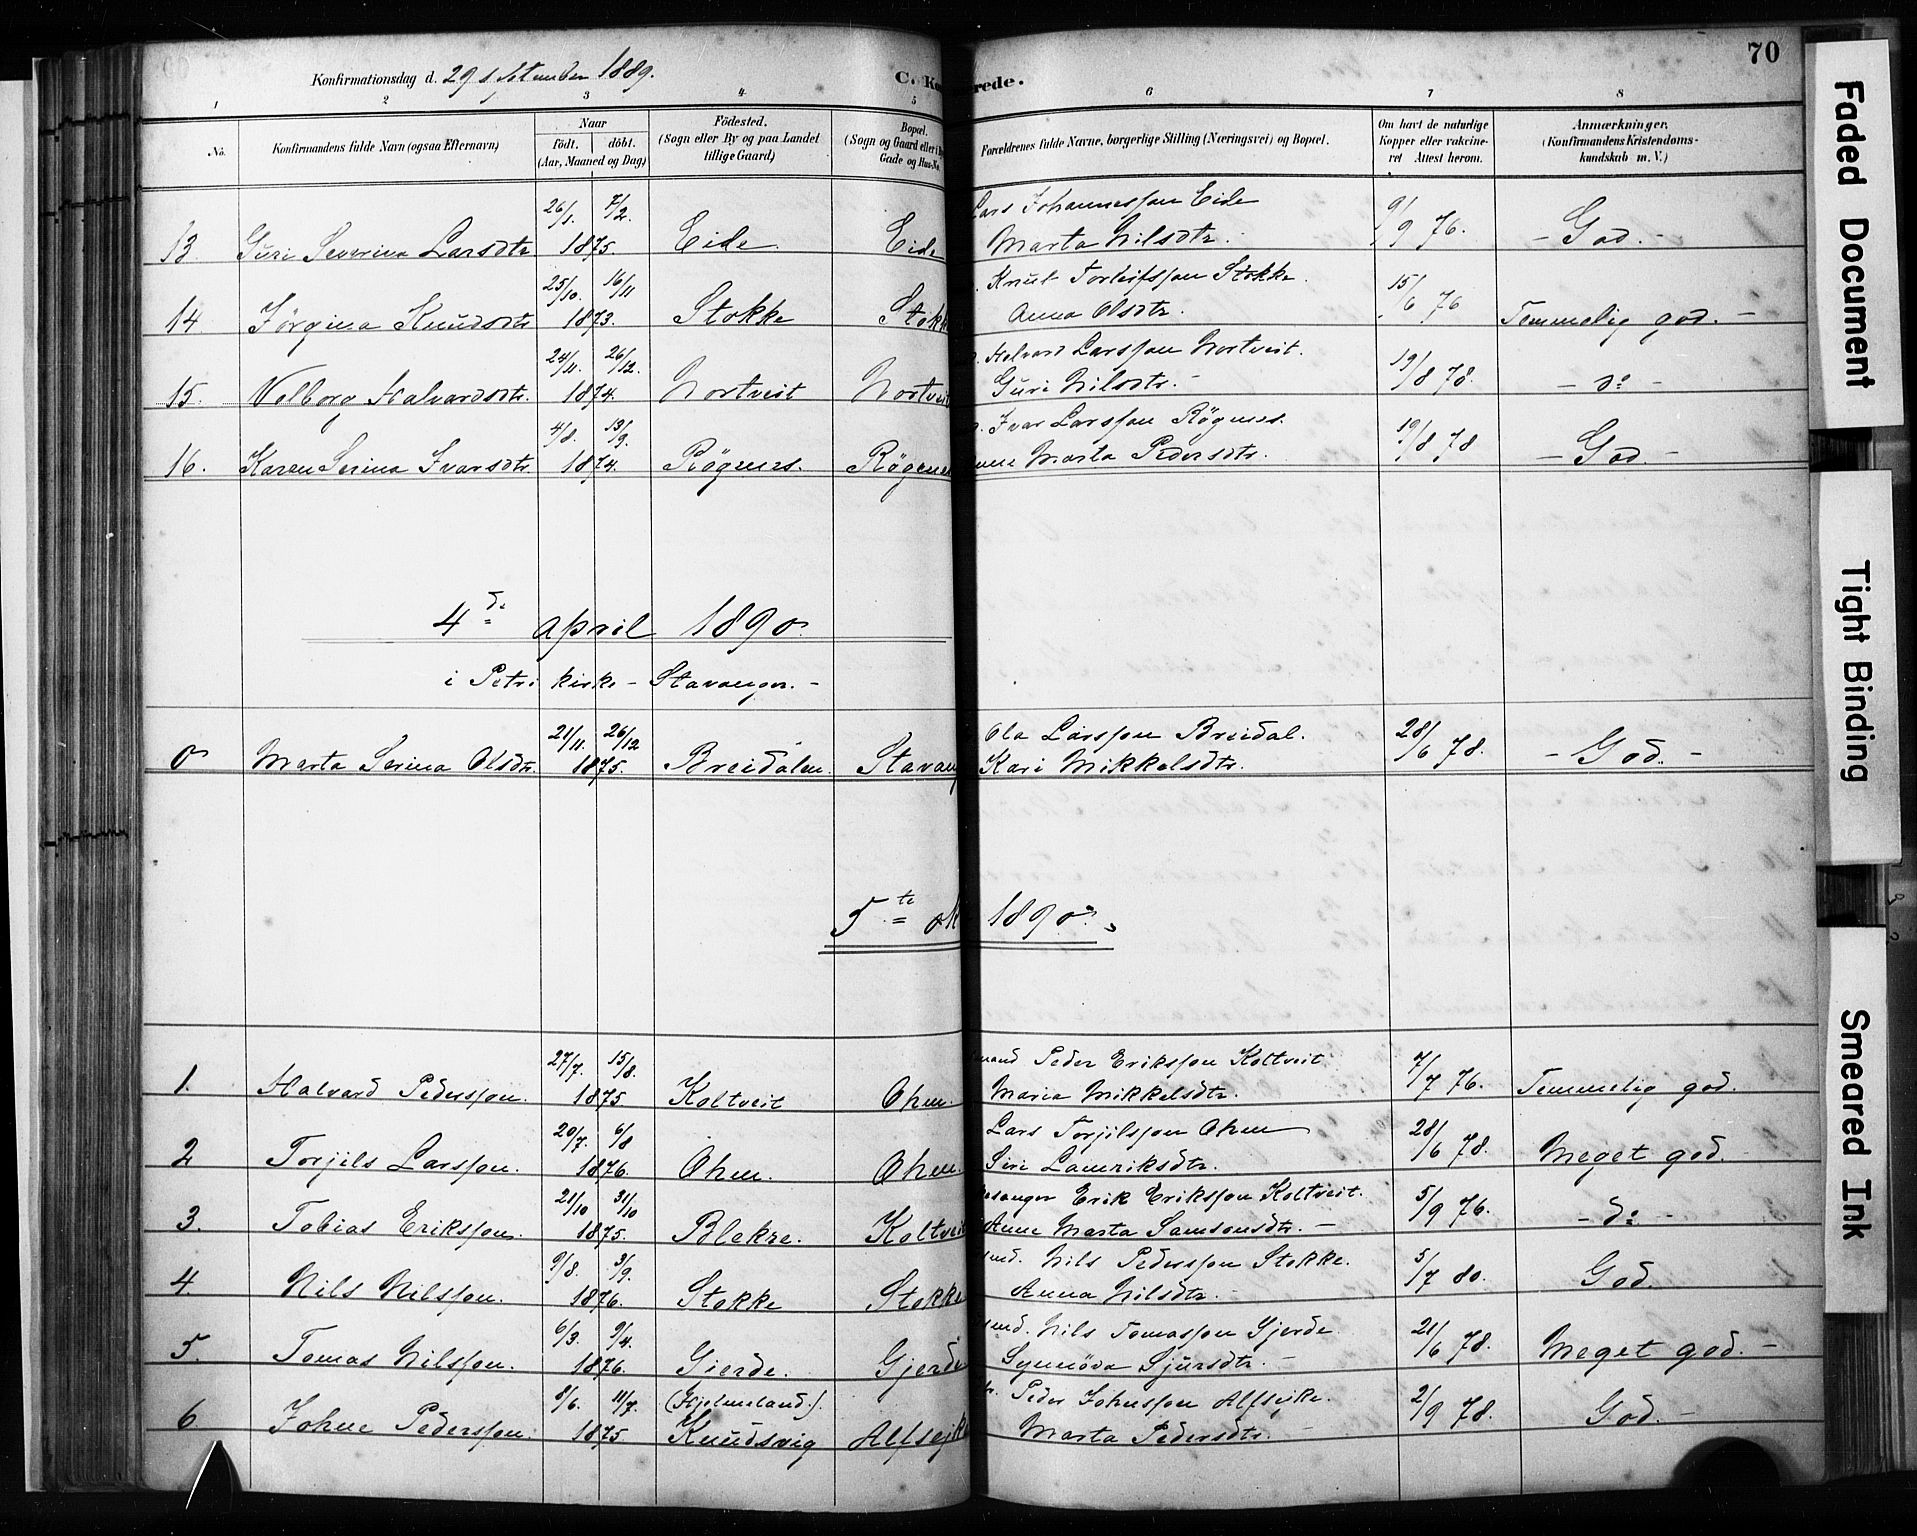 70
Konfirmationsdag d. 29 september 1889.
C. Ko rede.
1 2 3 4 5 6 7 8
No. Konfirmandens fulde Navn (ogsaa Efternavn) Naar født. døbt. (Aar, Maaned og Dag) Fødested. (Sogn eller By og paa Landet tillige Gaard) Bopæl. (Sogn og Gaard eller Gade og Hus-No. Forældrenes fulde Navne, borgerlige Stilling (Næringsvei) og Bopæl. Om havt de naturlige Kopper eller vakcineret Attest herom. Anmærkninger. (Konfirmandens Kristendomskundskab m. V.)
26/1. 7/2. Lars Johannesson Eide 9/9 76.
13. Guri Severina Larsdtr 1875. Eide. Eide Marta Nilsdtr. - God. -
25/10. 16/11 Knut Torleifsson Stokke. 15/6 76
14 Jørgina Knudsdtr 1873. Stokke Stokk Anna Olsdtr. Temmelig god. -
24/11. 26/12. Halvard Larsson Nortveit. 19/8 78.
15. Valborg Halvardsdtr. 1874. Nortveit Nortveit Guri Nilsdtr. - - do -
4/8. 13/9. Ivar Larsson Røgnes. 19/8 78
16. Karen Serina Ivarsdtr. 1874. Røgnes. Røgenes Marta Pedersdtr. - God. -
4de april 1890.
i Petri kirke - Stavanger. -
21/11. 26/12 Ola Larsson Breidal. 28/6 78.
0 Marta Serina Olsdtr. 1875. Breidalen. Stavang Kari Mikkelsdtr. - God. -
5te ok 1890.
27/7. 15/8. mand Peder Eriksson Koltveit 7/7 76.
1. Halvard Pedersson. 1875 Koltveit Ohm. Maria Mikkelsdtr. Temmelig god.
20/7. 6/8 Lars Torjilsson Ohm 28/6 78.
2 Torjils Larsson. 1876. Ohm. Ohm. Siri Lamriksdtr. Meget god. -
21/10 31/10 Erik Eriksson Koltveit. 5/9 76.
3. Tobias Eriksson. 1875. Blekre. Koltveit Anne Marta Samsonsdtr. - - do -
9/8. 3/9. md. Nils Pedersson Stokke. 5/7 80.
4. Nils Nilsson. 1876. Stokke Stokke Anna Nilsdtr. - God
6/3. 9/4. md. Nils Tomasson Gjerde 21/6 78.
5. Tomas Nilsson. 1876. Gjerde. Gjerde Synnöva Sjursdtr. - Meget god. -
8/6. 11/7. (Hjelmeland.) Peder Johnsson Alfsvike. 2/9 78.
6 Johne Pedersson. 1875 Knudsvig Alfsvik Marta Pedersdtr. - God. -
Faded Document
Tight Binding
Smeared Ink